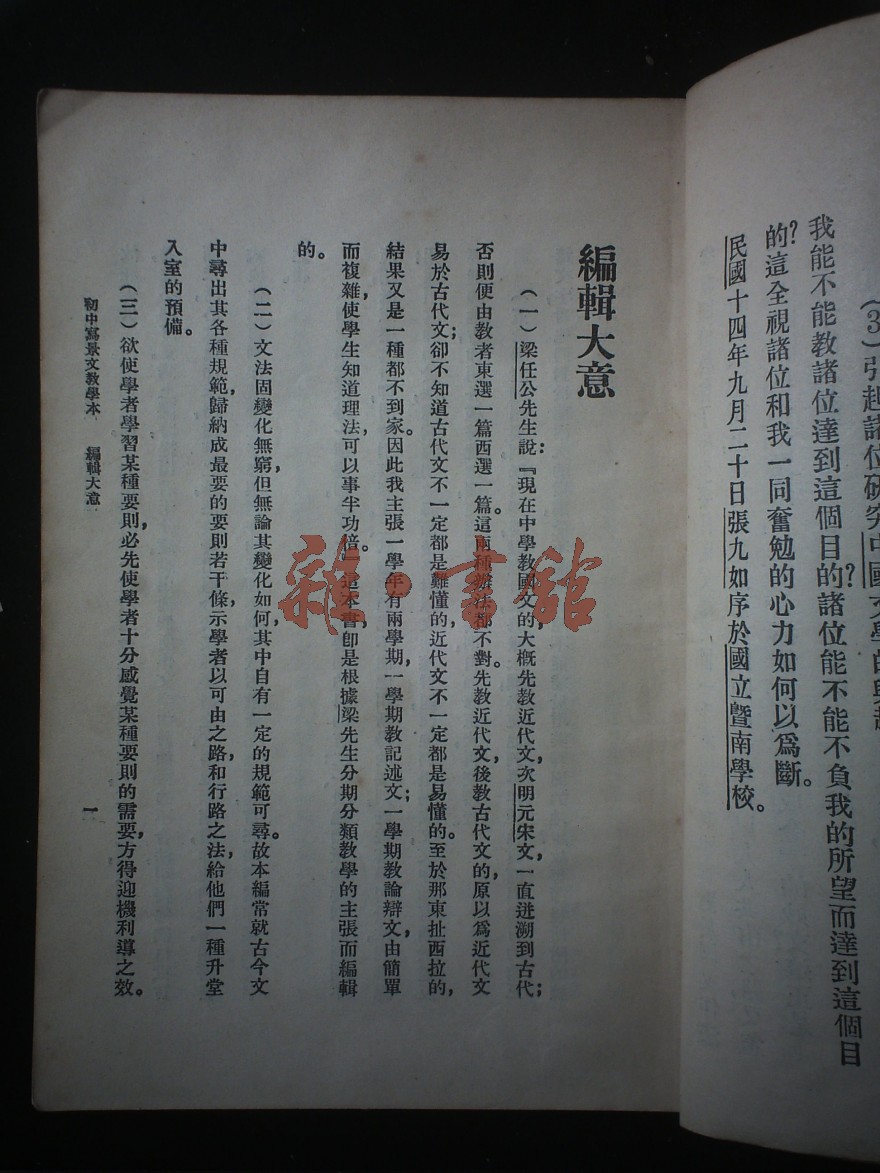 (3)引起諸位研究中國文學的興趣
我能不能教諸位達到這個目的?諸位能不能不負我的所望而達到這個目
的?這全視諸位和我一同奮勉的心力如何以爲斷。
民國十四年九月二十日張九如序於國立暨南學校。
編輯大意
(一)梁任公先生說:『現在中學教國文的,大概先教近代文,次明元宋文,一直迸溯到古代;
否則便由教者東選一篇西選一篇。這兩種辦法都不對。先教近代文,後教古代文的,原以爲近代文
易於古代文;卻不知道古代文不一定都是難懂的,近代文不一定都是易懂的。至於那東扯西拉的,
結果又是一種都不到家。因此我主張一學年有兩學期,一學期教記述文;一學期教論辯文,由簡單
而複雜,使學生知道理法,可以事半功倍。』這本書卽是根據梁先生分期分類教學的主張而編輯
的。
(二)文法固變化無窮,但無論其變化如何,其中自有一定的規範可尋。故本編常就古今文
中尋出其各種規範,歸納成最要的要則若干條,示學者以可由之路,和行路之法,給他們一種升堂
入室的預備。
(三)欲使學者學習某種要則,必先使學者十分感覺某種要則的需要,方得迎機利導之效。
初中寫景文教學本 編輯大意 一
雜·書館